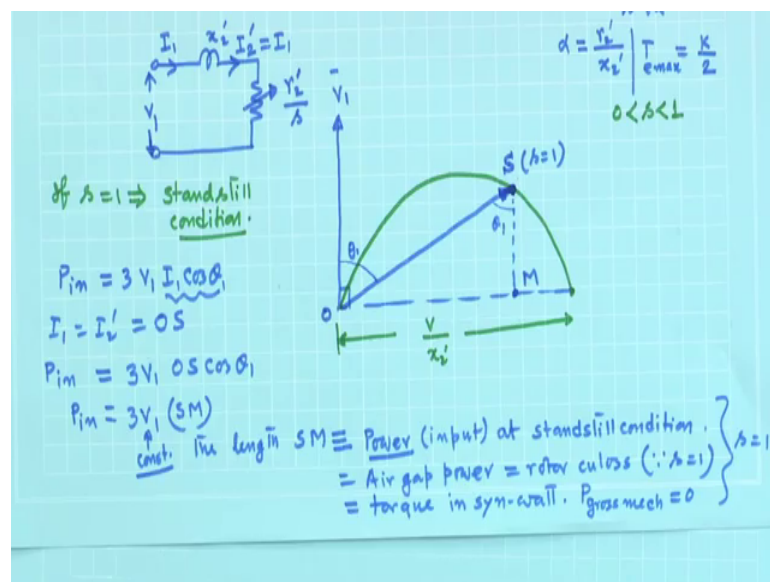 I₁ x₂' I₂' = I₁
V₁
r₂'/s
α = r₂'/x₂' | Tₑmax = K/2
0 < s < 1
V̄₁
S (s=1)
θ₁
θ₁
O
M
V/x₂'
If s = 1 ⇒ standstill
condition.
Pin = 3 V₁ I₁ cosθ₁
I₁ = I₂' = OS
Pin = 3V₁ OS cosθ₁
Pin = 3V₁ (SM)
const. The length SM ≡ Power (input) at standstill condition.
= Air gap power = rotor cu loss (∵ s=1)
= torque in syn-watt. Pgross mech = 0
s=1